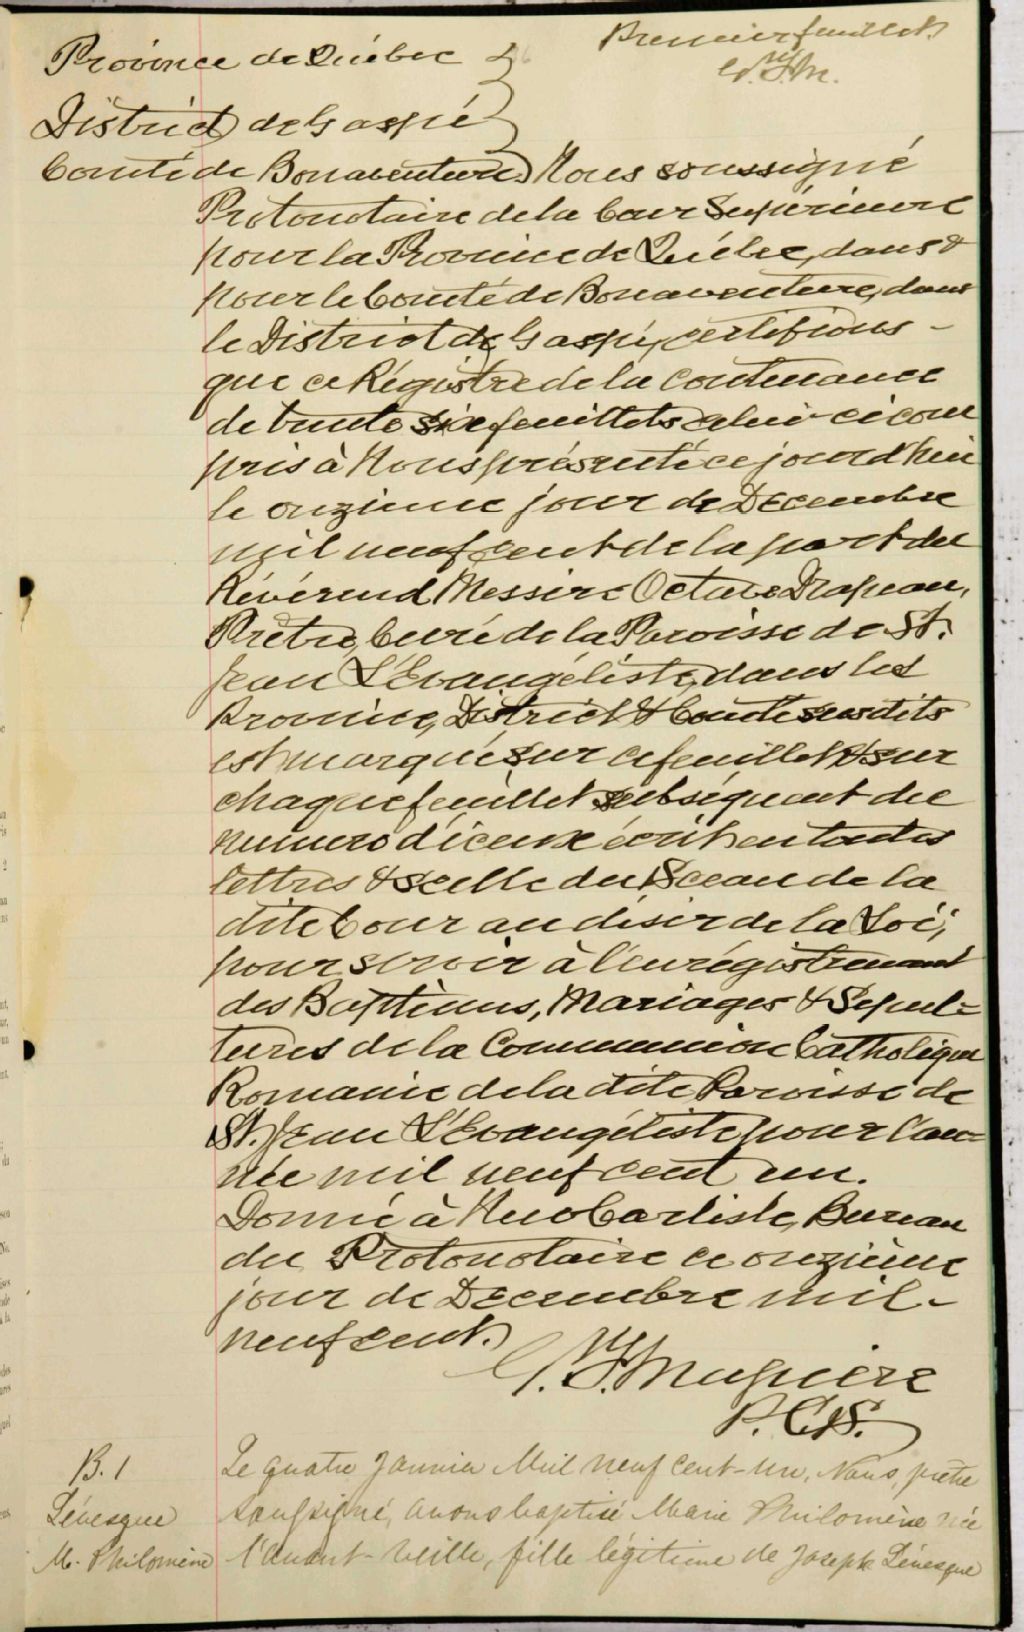 Premier feuillet
Province de Québec
District de Gaspé
Comté de Bonaventure Nous soussigné
Protonotaire de la Cour Supérieure
pour la Province de Québec, dans &
pour le Comté de Bonaventure, dans
le District de Gaspé, certifions -
que ce Régistre de la Contenance
de trente six feuillets celui-ci com
pris à Nous présenté ce jourd'hui
le onzieme jour de Decembre
mil neuf cent de la part du
Révérend Messire Octave Drapeau,
Prêtre, Curé de la Paroisse de St.
Jean L'Evangéliste, dans les
Province, District & Comté susdits
est marqué sur ce feuillet & sur
chaque feuillet subséquent du
numero d'iceux écrit en toutes
lettres & scellé du Sceau de la
dite Cour au désir de la Loi;
pour servir à l'enrégistrement
des Baptêmes, Mariages & Sepul=
tures de la Communion Catholique
Romaine de la dite Paroisse de
St. Jean L'Evangéliste pour l'an=
née mil neuf cent un.
Donné à New Carlisle, Bureau
du Protonotaire ce onzième
jour de Decembre mil -
neuf cent.
P.C.S.
B. 1
Lévesque
M. Philomène
Le quatre Janvier Mil neuf cent-un, Nous, prêtre
soussigné, avons baptisé Marie Philomène née
l'avant-veille, fille légitime de Joseph Lévesque